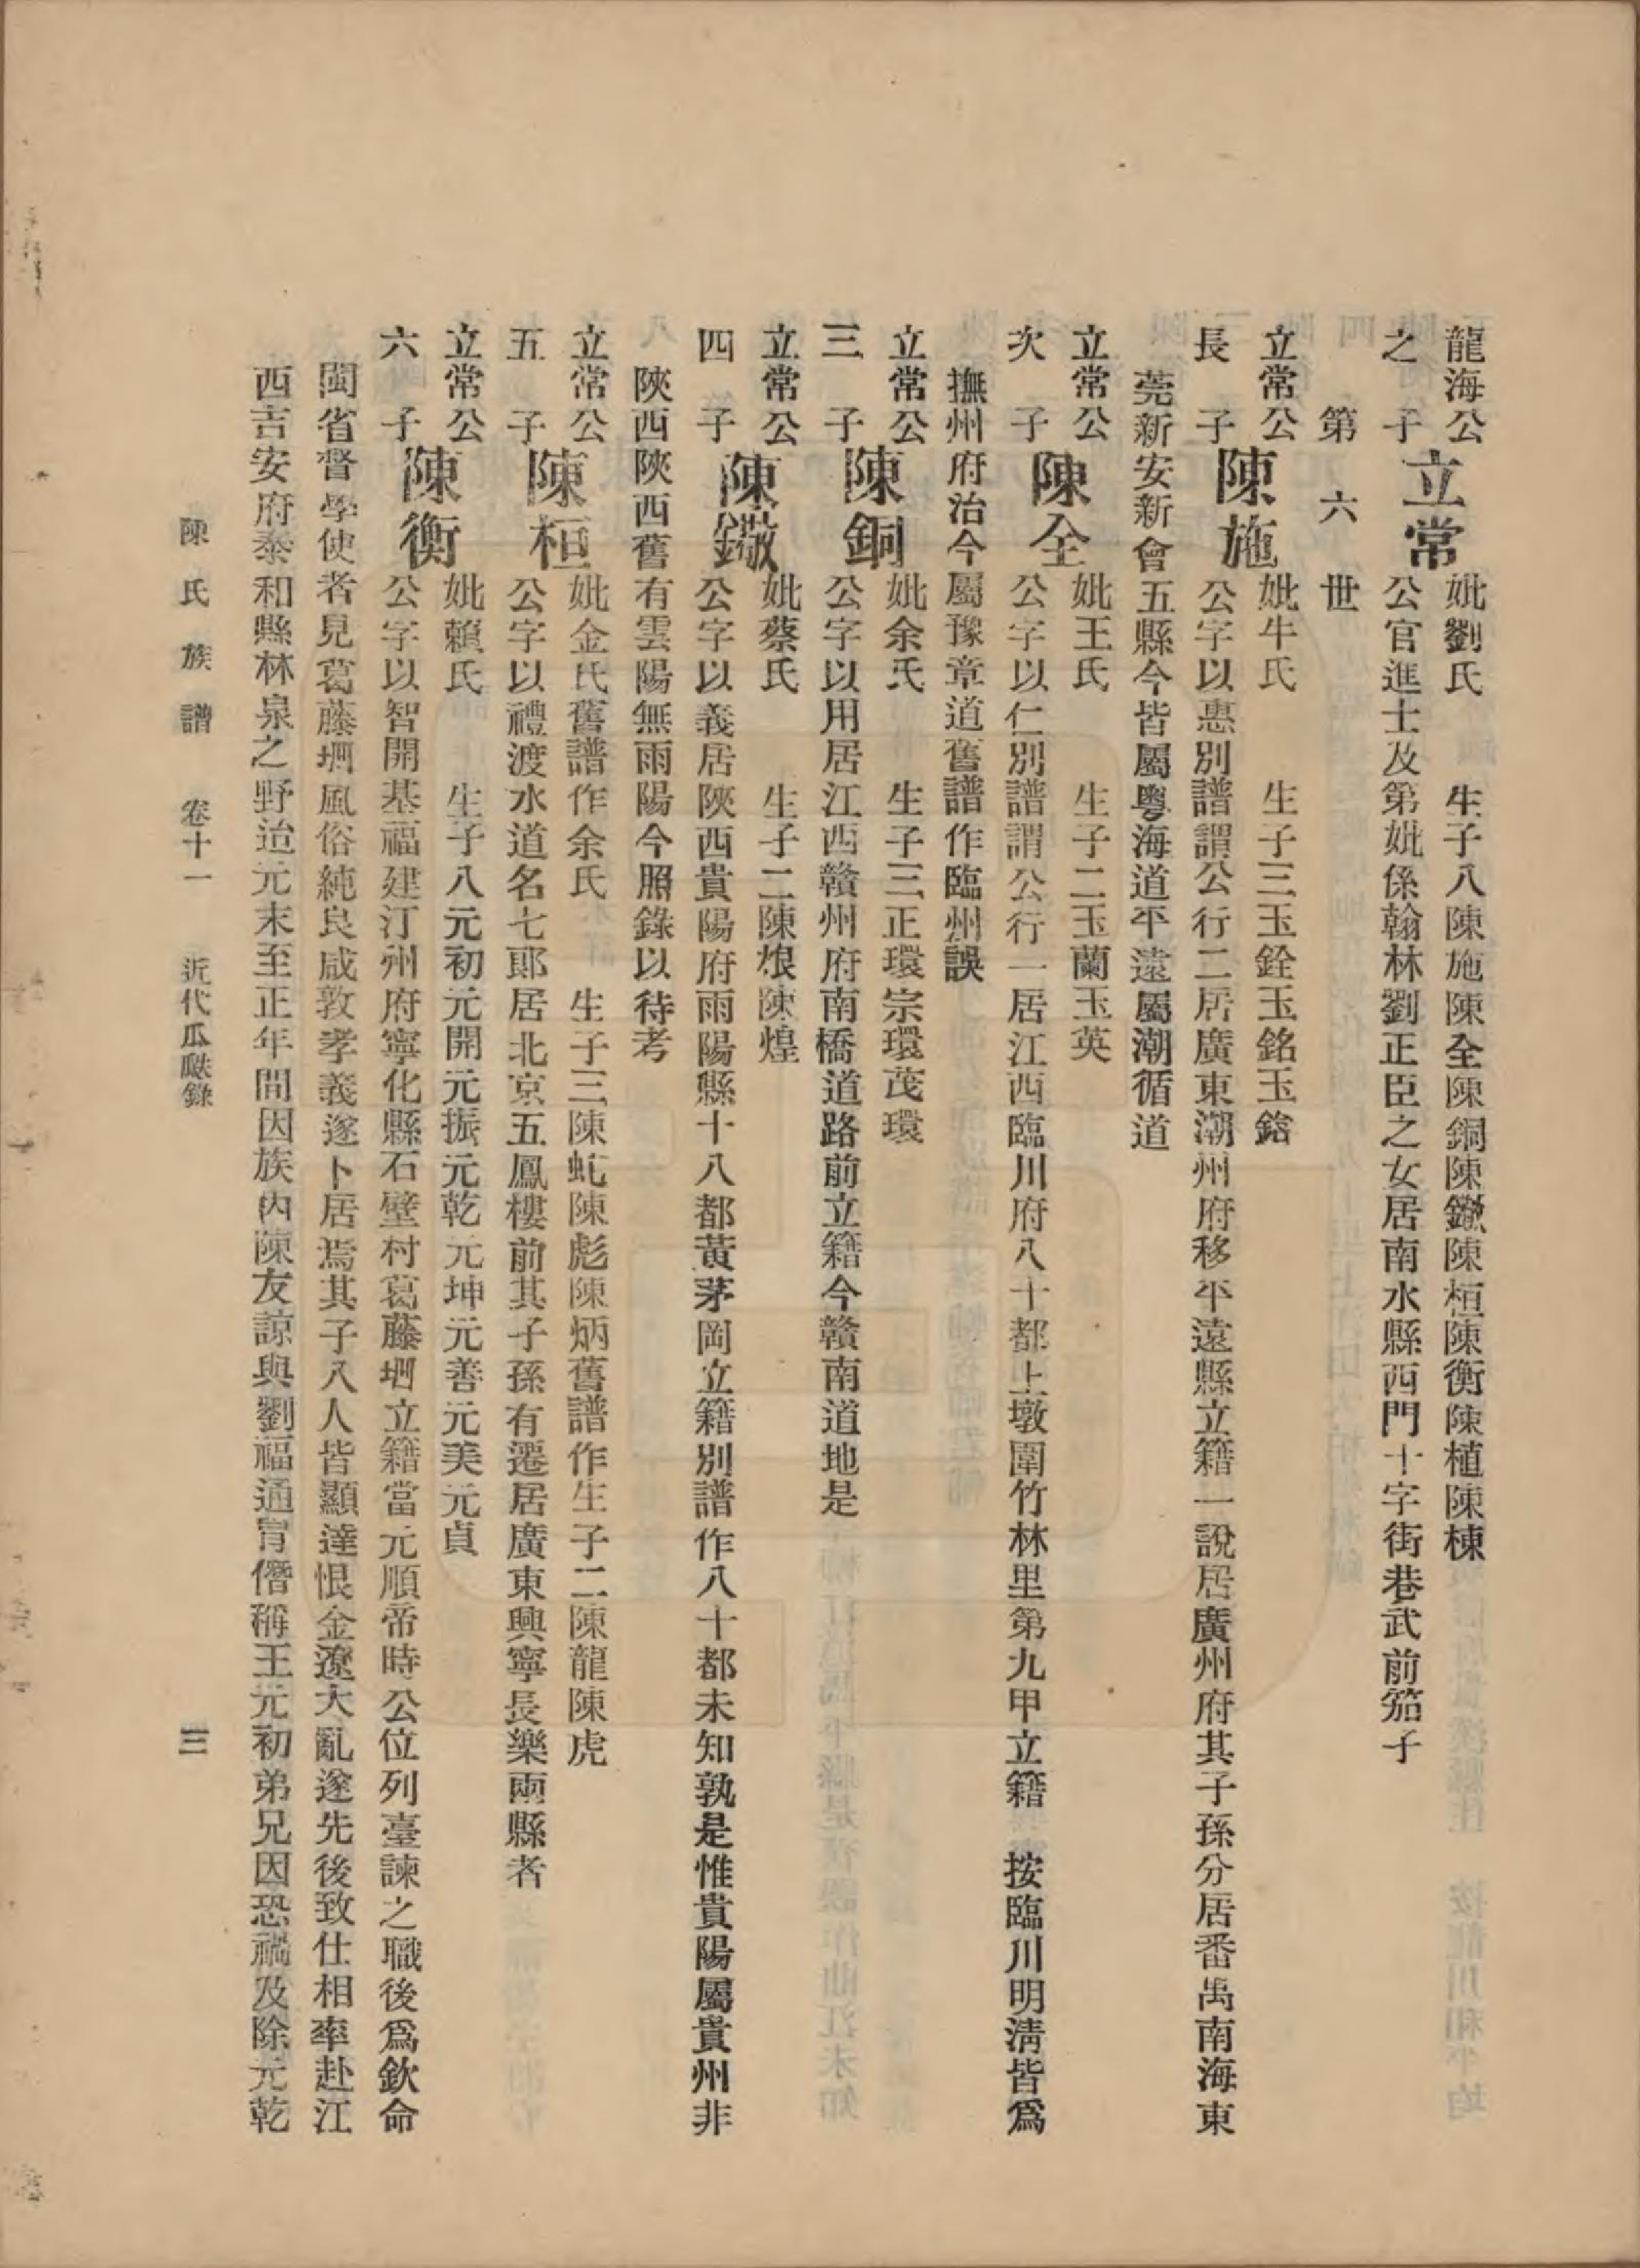 龍海公 妣劉氏 生子八陳施陳全陳銅陳鐓陳桓陳衡陳植陳棟
之子 立常 公官進士及第妣係翰林劉正臣之女居南水縣西門十字街巷武前茄子
第六世
立常公 妣牛氏 生子三玉銓玉銘玉鎗
長子 陳施 公字以惠別譜謂公行二居廣東潮州府移平遠縣立籍一說居廣州府其子孫分居番禺南海東
莞新安新會五縣今皆屬粵海道平遠屬潮循道
立常公 妣王氏 生子二玉蘭玉英
次子 陳全 公字以仁別譜謂公行一居江西臨川府八十都上墩圍竹林里第九甲立籍 按臨川明清皆爲
撫州府治今屬豫章道舊譜作臨州誤
立常公 妣余氏 生子三正環宗環茂環
三子 陳銅 公字以用居江西贛州府南橋道路前立籍今贛南道地是
立常公 妣蔡氏 生子二陳烺陳煌
四子 陳鐓 公字以義居陝西貴陽府雨陽縣十八都黃茅岡立籍別譜作八十都未知孰是惟貴陽屬貴州非
陝西陝西舊有雲陽無雨陽今照錄以待考
立常公 妣金氏舊譜作余氏 生子三陳虬陳彪陳炳舊譜作生子二陳龍陳虎
五子 陳桓 公字以禮渡水道名七郎居北京五鳳樓前其子孫有遷居廣東興寧長樂兩縣者
立常公 妣賴氏 生子八元初元開元振元乾元坤元善元美元貞
六子 陳衡 公字以智開基福建汀州府寧化縣石壁村葛藤坰立籍當元順帝時公位列臺諫之職後爲欽命
閩省督學使者見葛藤坰風俗純良咸敦孝義遂卜居焉其子八人皆顯達恨金遼大亂遂先後致仕相率赴江
西吉安府泰和縣林泉之野迨元末至正年間因族內陳友諒與劉福通冐僭稱王元初弟兄因恐禍及除元乾
陳氏族譜 卷十一 近代瓜瓞錄 三